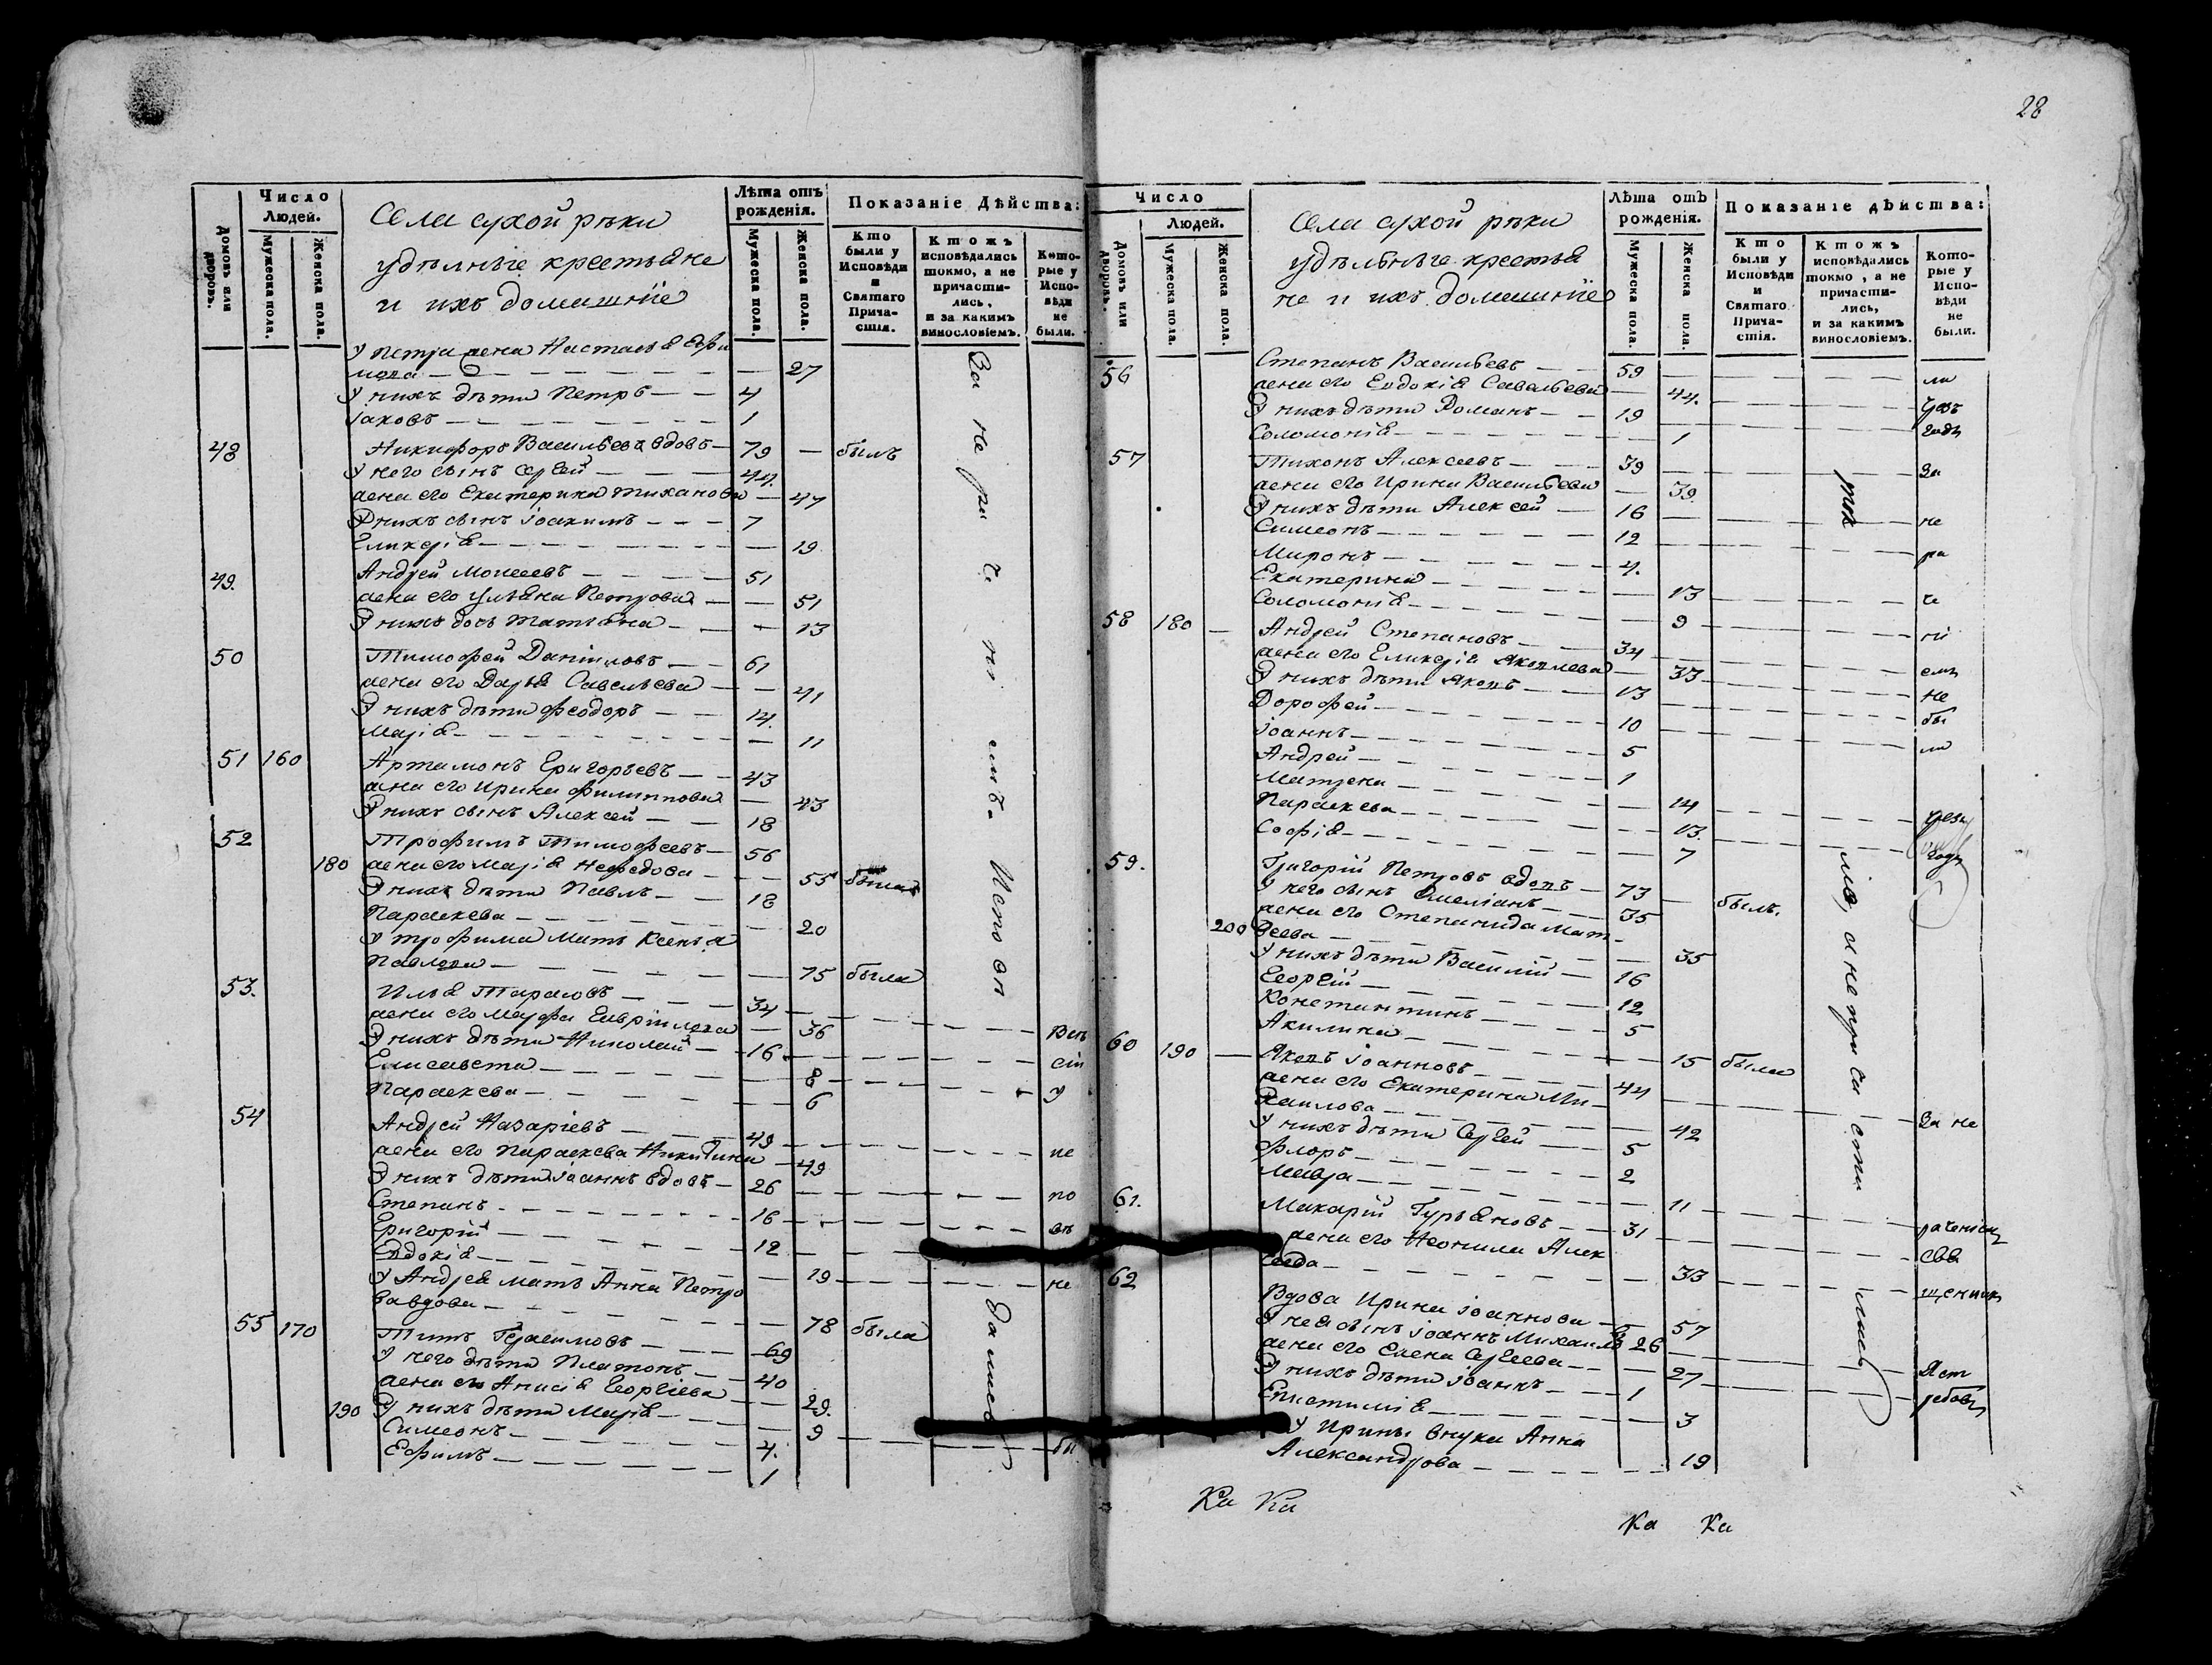 28
Домовъ или дворовъ.
Число Людей.
Мужеска пола.
Женска пола.
Села сухой рѣки
удѣлныіе крестьяне
и ихъ домашніе
Лѣта отъ рожденія.
Мужеска пола.
Женска пола.
Показаніе Дѣйства:
Кто были у Исповѣди и Святаго Причастія.
Ктожъ исповѣдались токмо, а не причастились, и за какимъ винословіемъ.
Которые у Исповѣди не были.
У Петра жена Настасья Ефи
мова — 27
У нихъ дѣти Петръ — 4
Іаковъ — 1
48 Никифоръ Васильевъ вдовъ — 79 — былъ
У него сынъ Сергей — 44.
жена его Екатерина Тиханова — 47
У нихъ сынъ Іоакимъ — 7
Гликерія — 19
49. Андрей Моисеевъ — 51
жена его Ульяна Петрова — 51
У нихъ дочь Татьяна — 13
50 Тимофей Даніиловъ — 61
жена его Дарья Савельева — 41
У нихъ дѣти Феодоръ — 14.
Марія — 11
51 160 Артамонъ Григорьевъ — 43
жена его Ирина Филиппова — 43
У нихъ сынъ Алексей — 18
52 Трофимъ Тимофеевъ — 56
180 жена его Марія Нефедова — 55 была
У нихъ дѣти Павлъ — 18
Параскева — 20
У Трофима мать Ксенья
Павлова — 75 была
53. Илья Тарасовъ — 34
жена его Марфа Гавріилова — 36 —
У нихъ дѣти Николай — 16
Елисавета — 8
Параскева — 6 — у
54 Андрей Назаріевъ — 49
жена его Параскева Никитина — 49 — не
У нихъ дѣти Іоаннъ вдовъ — 26
Степанъ — 16 — по
Григорій — 12
Евдокія — 19 — не
У Андрея мать Анна Петро
ва вдова — 78 была
55 170 Титъ Герасимовъ — 69
У него дѣти Платонъ — 40
жена его Анисія Георгіева — 29.
190 У нихъ дѣти Марія — 9
Симеонъ — 4. — бы
Ефимъ — 1
За нерачениемъ. Исповѣдались
Домовъ или дворовъ.
Число Людей.
Мужеска пола.
Женска пола.
Села сухой рѣки
удѣльныіе крестья
не и ихъ домашніе
Лѣта отъ рожденія.
Мужеска пола.
Женска пола.
Показаніе дѣйства:
Кто были у Исповѣди и Святаго Причастія.
Ктожъ исповѣдались токмо, а не причастились, и за какимъ винословіемъ.
Которые у Исповѣди не были.
56 Степанъ Васильевъ — 59 — ли
жена его Евдокія Савельева — 44.
У нихъ дѣти Романъ — 19
Соломонія — 1
57 Тихонъ Алексеевъ — 39 — За
жена его Ирина Васильева — 39.
У нихъ дѣти Алексей — 16 — не
Симеонъ — 12 — ра
Миронъ — 4.
Екатерина — 13 — че
Соломонія — 9 — ні
58 180 Андрей Степановъ — 34 — емъ
жена его Гликерія Яковлева — 33 — не
У нихъ дѣти Яковъ — 13 — бы
Дорофей — 10 — ли
Іоаннъ — 5
Андрей — 1
Матрена — 14
Параскева — 13.
Софія — 7
59. Григорій Петровъ вдовъ — 73 — былъ.
У него сынъ Емеліанъ — 35
200 жена его Степанида Мат-
веева — 35
У нихъ дѣти Василій — 16
Георгій — 12
Константинъ — 5
Акилина — 15 была
60 190 — Яковъ Іоанновъ — 44
жена его Екатерина Ми-
хаилова — 42 — За не
У нихъ дѣти Сергей — 5
Флоръ — 2
Мавра — 11
61. Макарій Гурьяновъ — 31
жена его Неонила Алек
сеева — 33
62 Вдова Ирина Іоаннова — 57
У нея сынъ Іоаннъ Михаиловъ 26
жена его Елена Сергеева — 27
У нихъ дѣти Іоаннъ — 1
Епистимія — 3
У Ирины внука Анна
Александрова — 19
Ка Ка
Ка Ка